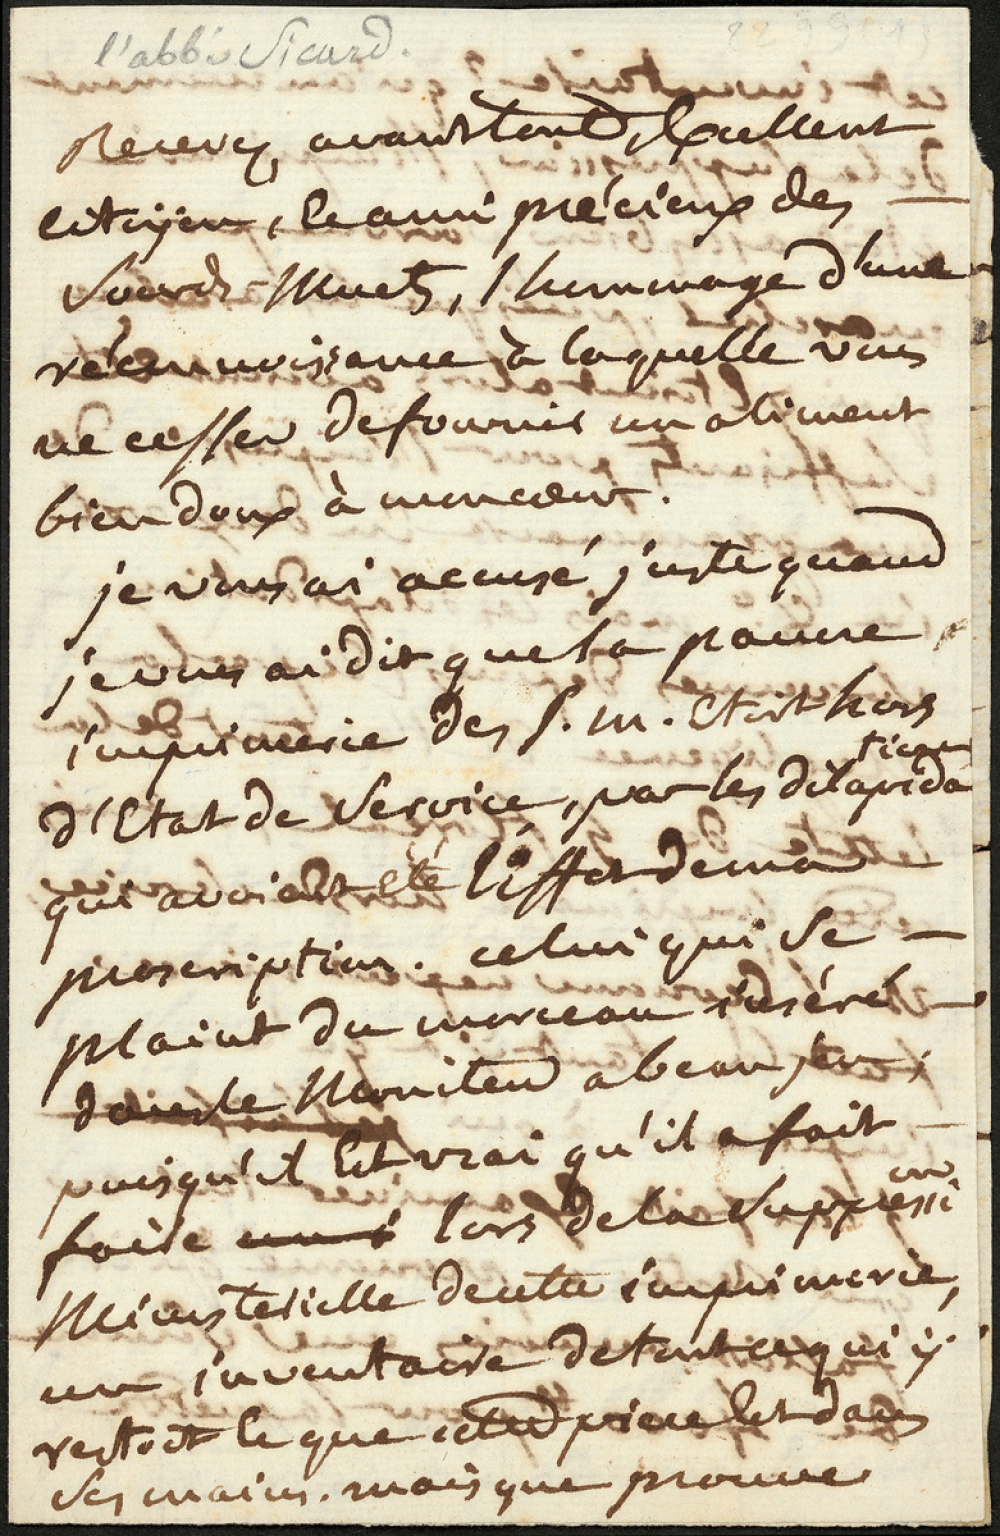 l'abbé Sicard.
Recevez, avant tout, Excellent
citoyen, le ami précieux des
Sourds-Muets, l'hommage d'une
réconnoissance à laquelle vous
ne cessez de fournir un aliment
bien doux à mon cœur.
je vous ai accusé juste quand
je vous ai dit que la pauvre
imprimerie des S. M. Etoit hors
d'Etat de Service, par les dilapidations
qui avoient été l'Effet de ma
proscription. celui qui se
plaint du morceau inséré
dans le Moniteur a beau jeu,
puisqu'il Est vrai qu'il a fait
faire lors de la Suppression
Ministerielle de cette imprimerie,
un inventaire de tout ce qui y
restoit Et que cette piece Est dans
Ses mains. mais que prouve